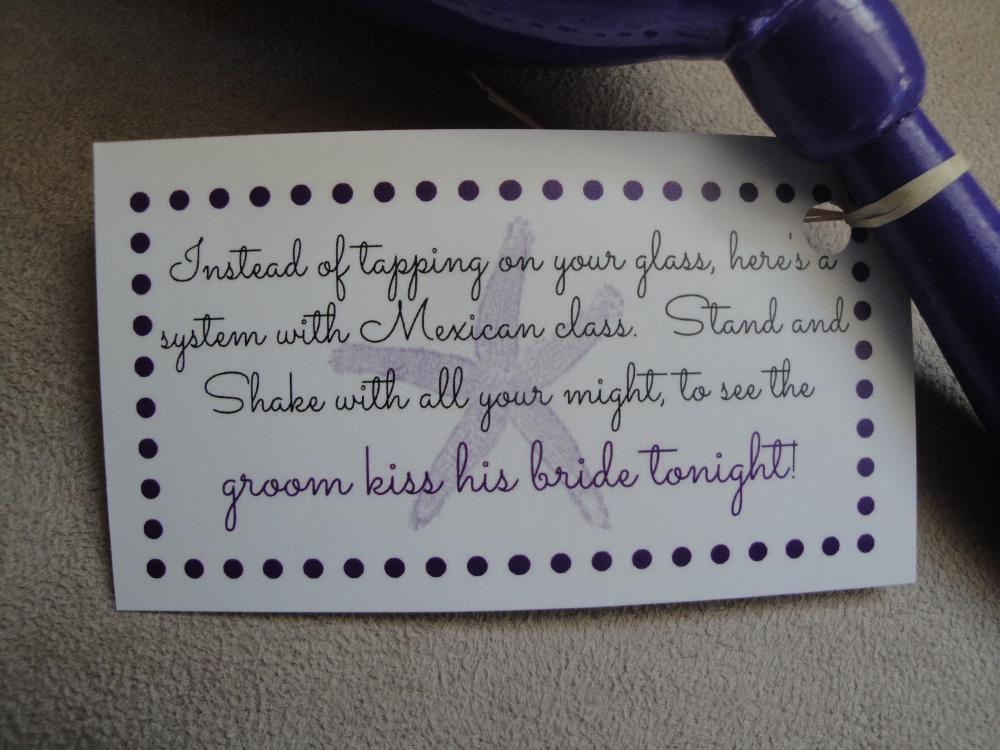 Instead of tapping on your glass, here's a
system with Mexican class. Stand and
Shake with all your might, to see the
groom kiss his bride tonight!